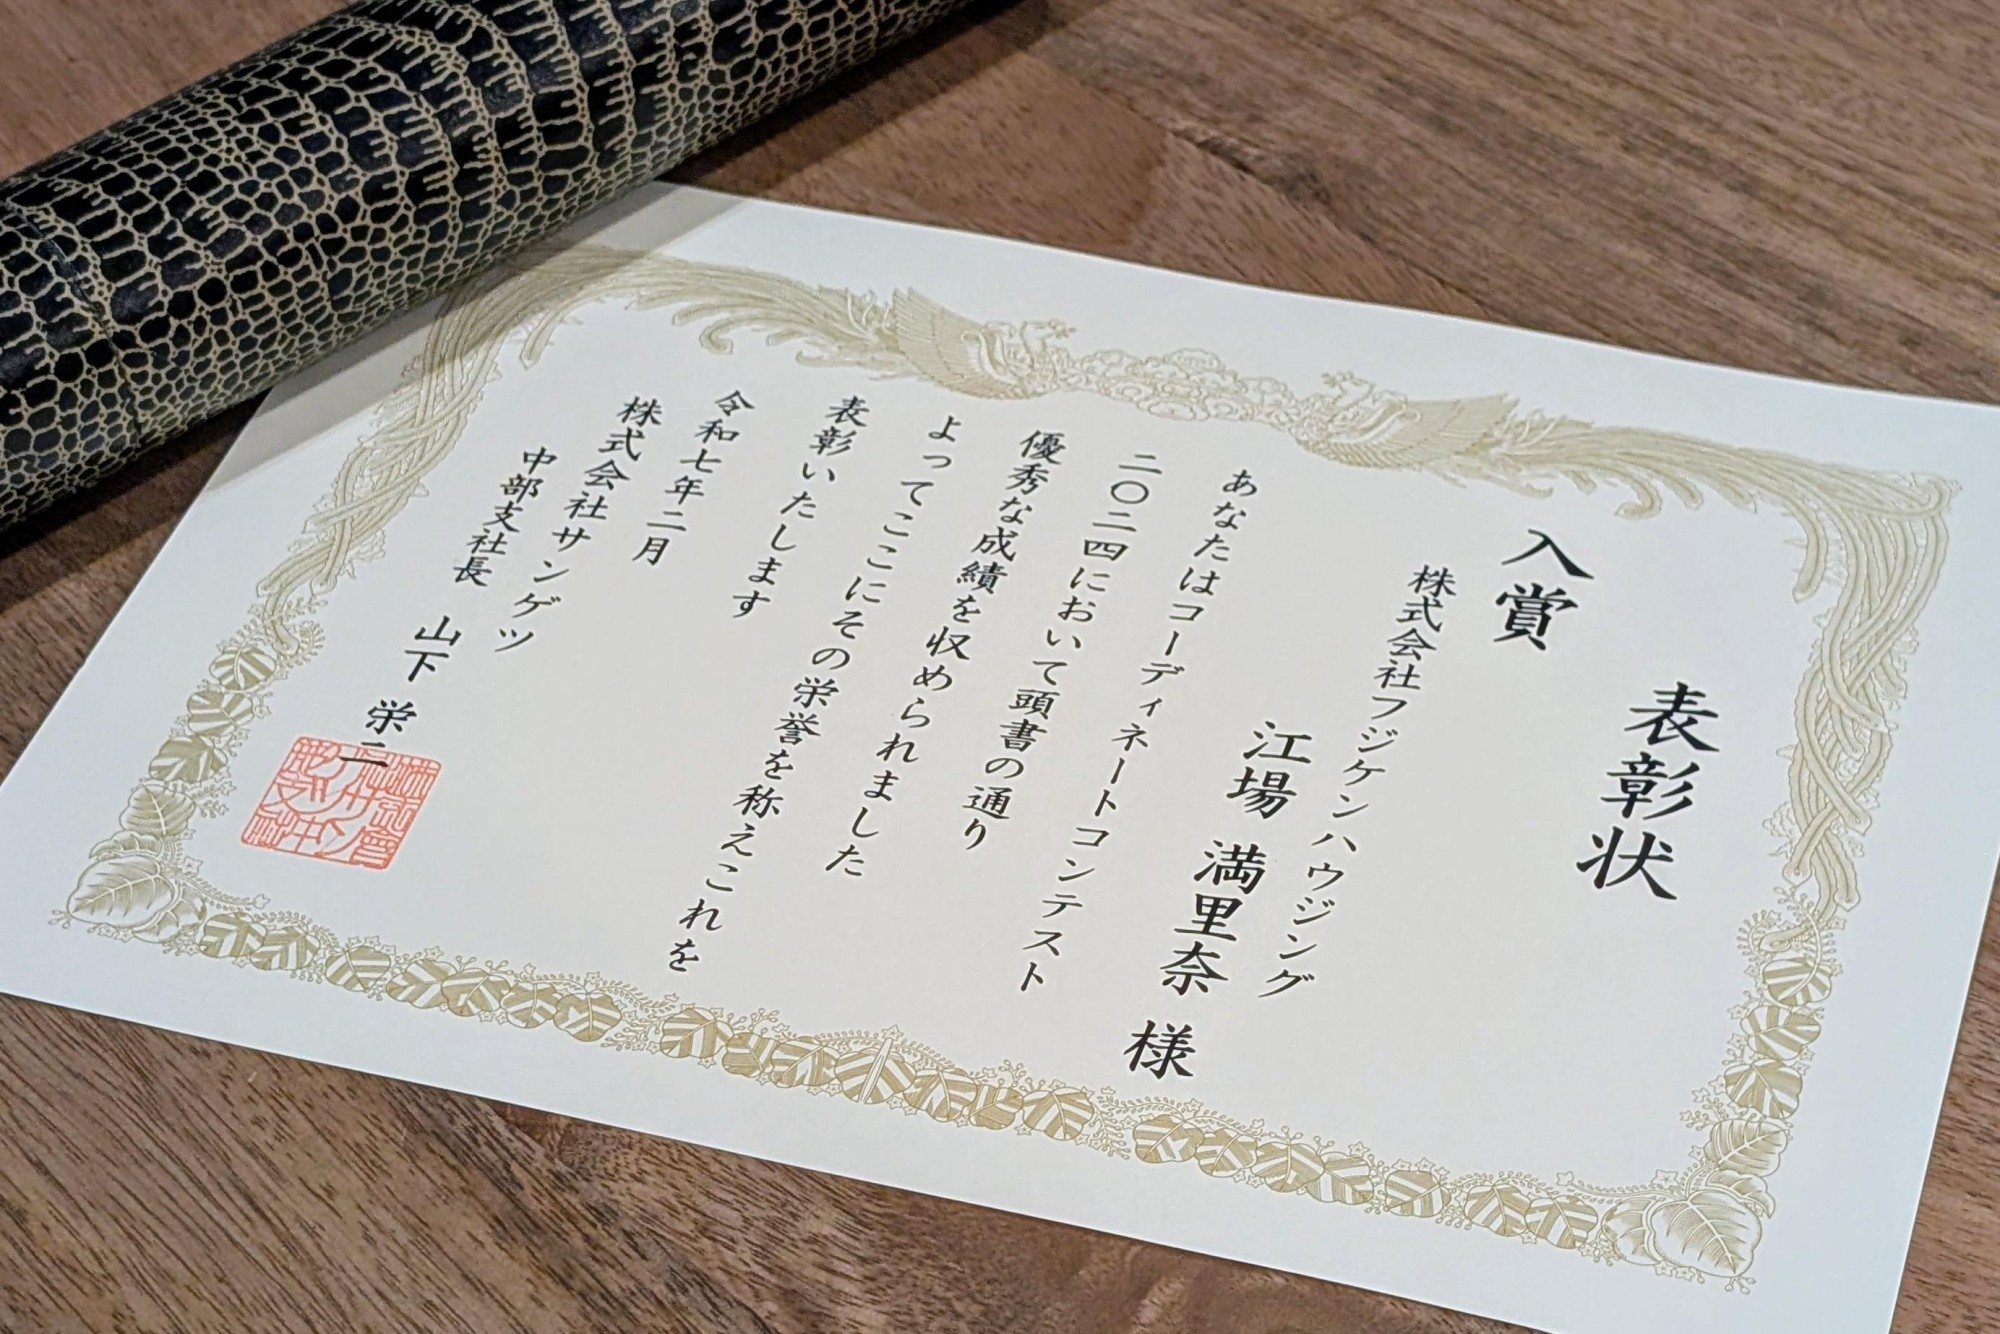 表彰状
入賞
株式会社フジケンハウジング
江場 満里奈 様
あなたはコーディネートコンテスト
二〇二四において頭書の通り
優秀な成績を収められました
よってここにその栄誉を称えこれを
表彰いたします
令和七年二月
株式会社サンゲツ
中部支社長 山下 栄二